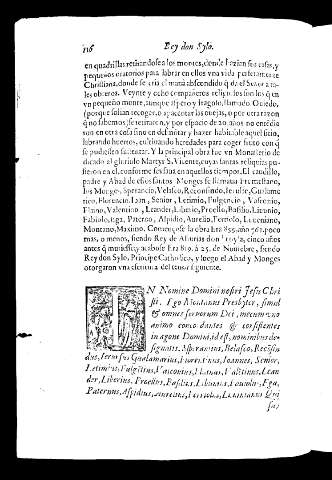 116 Rey don Sylo.
en quadrillas retirandose a los montes, donde hazian sus casas, y
pequeños oratorios para labrar en ellos vna vida perfectamente
Christiana, donde se cria el maná abscondido q̃ da el Señor a ta-
les obreros. Veynte y ocho compañeros religiosos son los q̃ en
vn pequeño monte, aunque aspero y fragoso, llamado Ouiedo,
(porque solian recoger, o apacentar las ouejas, o por otra razon
q̃ no sabemos) se juntaron, y por espacio de 20. años no entẽdiẽ
ron en otra cosa sino en desmõtar y hazer habitable aquel sitio,
labrando huertos, cultiuando heredades para coger fruto con q̃
se pudiessen sustentar. Y la principal obra fue vn Monasterio de
dicado al glorioso Martyr S. Vicente, cuyas santas reliquias pu-
sieron en el, conforme se vsaua en aquellos tiempos. El caudillo,
padre y Abad de estos santos Monges se llamaua Fromestano,
los Monges, Sperancio, Velasco, Recensindo,
rico, Florencio, Ioan, Senior, Letimio, Fulgencio, Vasconio,
Eliano, Valentino, Leander, Liberio, Proello, Basilio, Libonio,
Fabiolo, Ega, Paterno, Aspidio, Aurelio, Ferreolo, Lucentino,
Montano, Maximo. Començose la obra Era 855. año poco
mas, o menos, siendo Rey de Asturias don Froyla, cinco años
antes q̃ muriesse, y acabose Era 819. a 25. de Nouiembre, siendo
Rey don Sylo, Principe Catholico, y luego el Abad y Monges
otorgaron vna escritura del tenor siguiente.
IN Nomine Domini nostri Jesu Chri
sti. Ego Montanus Presbyter, simul
& omnes seruorum Dei, mecum vno
animo concordantes & consistentes
in agone Domini, id est, nominibus de-
signatis. Sperantius, Belasco, Recesin
dus, Letimius, Gualamarius, Florentinus, Joannes, Senior,
Letimius, Fulgitius, Vasconius, Elianus, Valētinus, Lean
der, Liberius, Proellus, Basilius, Libanius, Ega,
Paternus, Aspidius, Aurelius, Ferreolus, Lucentinus Qui
sus,